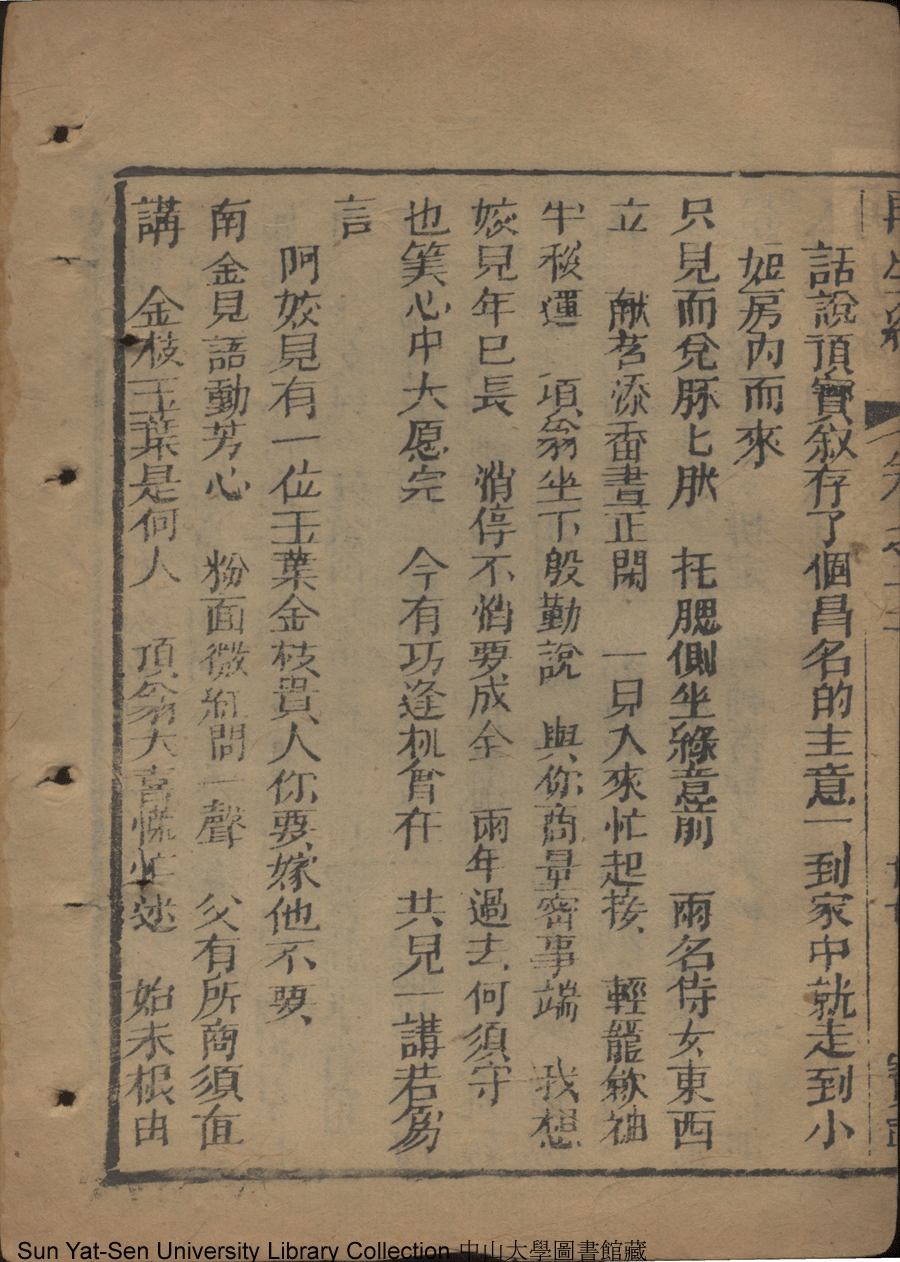 話說頂寶叙存了個昌名的主意一到家中就走到小
姐房內而來
只見而兌豚匕肰 托腮側坐綠意前 兩名侍女東西
立 献茗添香晝正閑 一見人來忙起接 輕籠欸袖
牛移運 項翁坐下殷勤說 與你商量審事端 我想
姣見年巳長 悄停不悄要成全 兩年過去何須守
也笑心中大愿完 今有巧逢机會在 共兒一講若爲
言
阿姣見有一位玉葉金枝貴人你要嫁他不要
南金見語動芳心 粉面微紅問一聲 父有所商須直
講 金枝玉葉是何人 項翁大喜慌忙述 始末根由
Sun Yat-Sen University Library Collection 中山大學圖書館藏